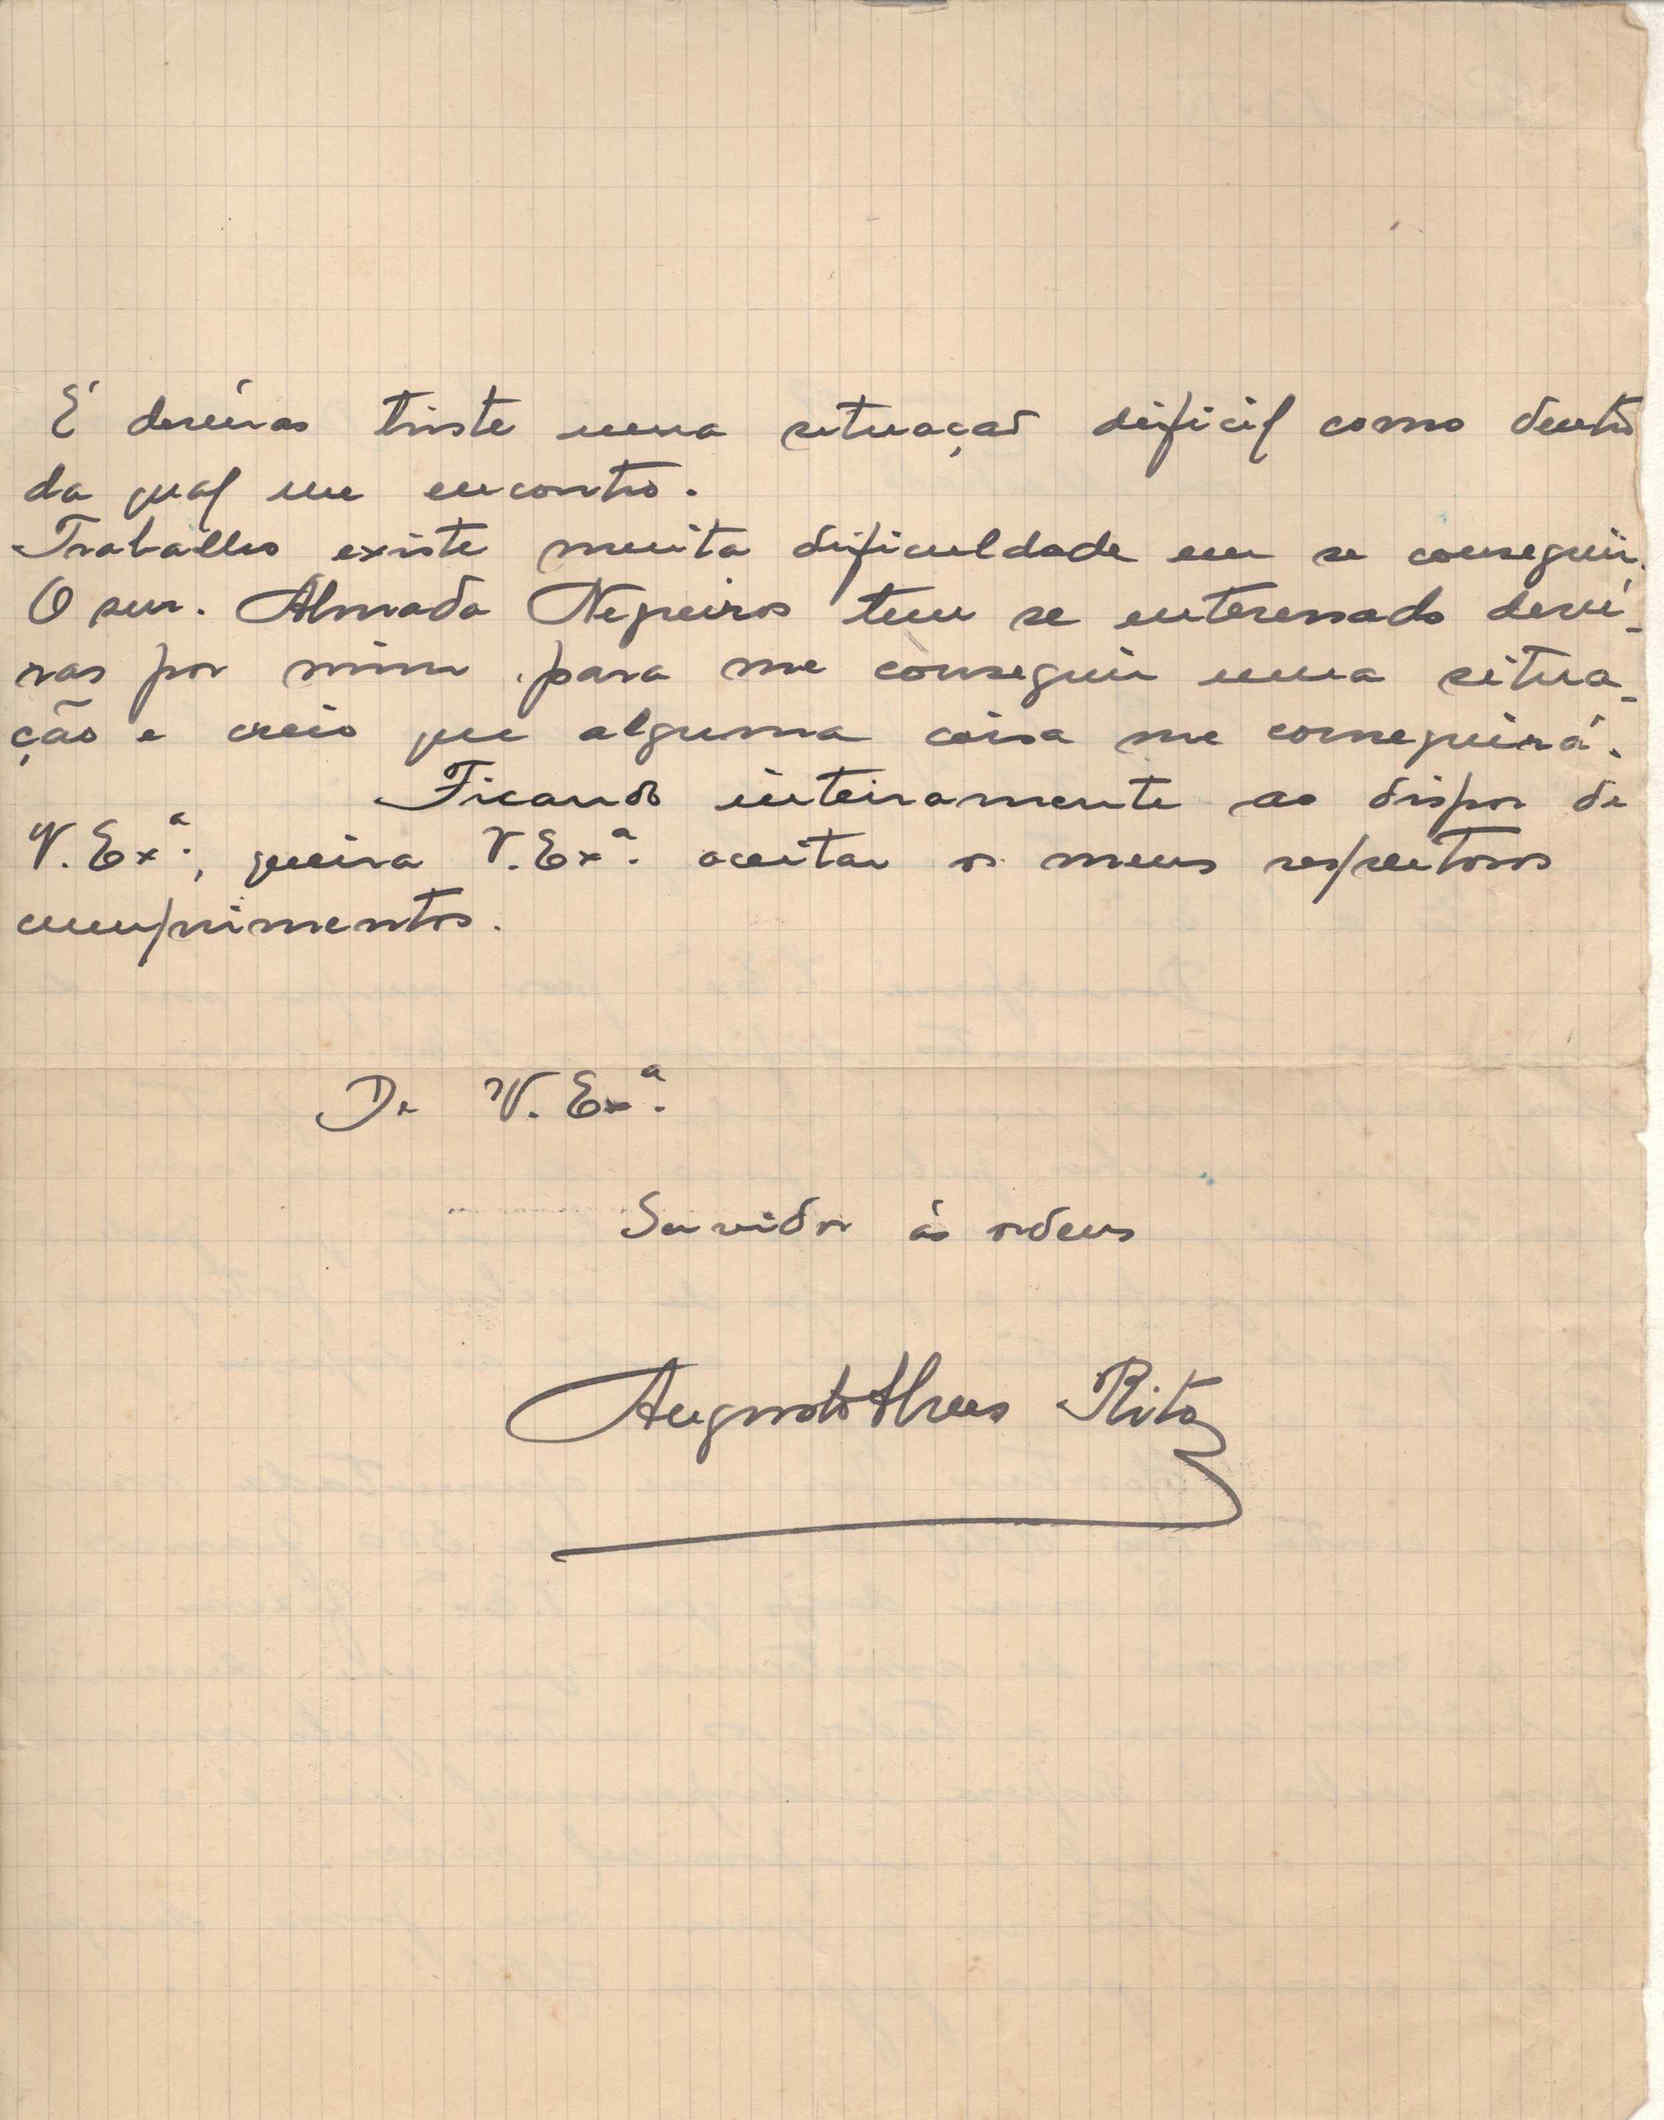 É deveras triste uma situação dificil como dentro
da qual me encontro.
Trabalho existe muita dificuldade em se conseguir.
O snr. Almada Negreiros tem se enteressado deve-
ras por mim para me conseguir uma situa-
ção e creio que alguma coisa me conseguirá.
Ficando inteiramente ao dispor de
V. Exª., queira V. Exª. aceitar os meus respeitosos
cumprimentos.
De V. Exª.
Servidor ás ordens
Augusto Alves Rita